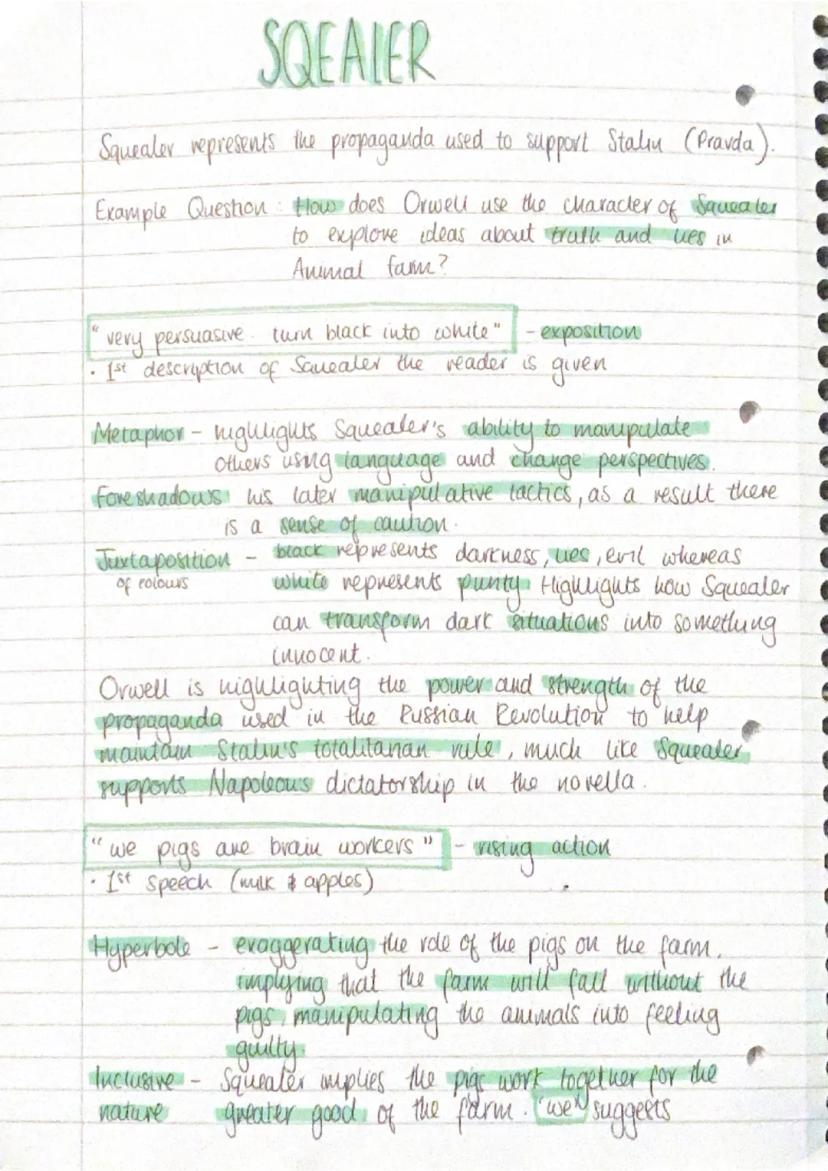 SQEALER
Squealer represents the propaganda used to support Stalin (Pravda).
Example Question: How does Orwell use the character of Squealer
to explore ideas about truth and lies in
Animal farm?
"very persuasive. turn black into white" - exposition
• 1st description of Squealer the reader is given
Metaphor - highlights Squealer's ability to manipulate
others using language and change perspectives.
Foreshadows his later manipulative tactics, as a result there
is a sense of caution.
Juxtaposition - black represents darkness, lies, evil whereas
of colours white represents purity Highlights how Squealer
can transform dark situations into something
innocent.
Orwell is highlighting the power and strength of the
propaganda used in the Russian Revolution to help
maintain Stalin's totalitarian rule, much like Squealer
supports Napoleons dictatorship in the novella.
"we pigs are brain workers" - rising action
• 1st speech (milk & apples)
Hyperbole - exaggerating the role of the pigs on the farm,
implying that the farm will fall without the
pigs, manipulating the animals into feeling
guilty.
Inclusive - Squealer implies the pigs work together for the
nature greater good of the farm. "we" suggests